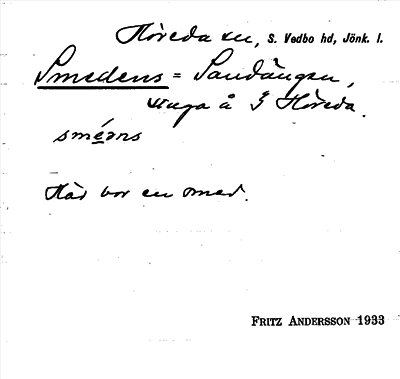 Höreda sn, S. Vedbo hd, Jönk. l.
Smedens = Sandängen,
stuga å 3 Höreda.
sméens
Här bor en smed.
FRITZ ANDERSSON 1933